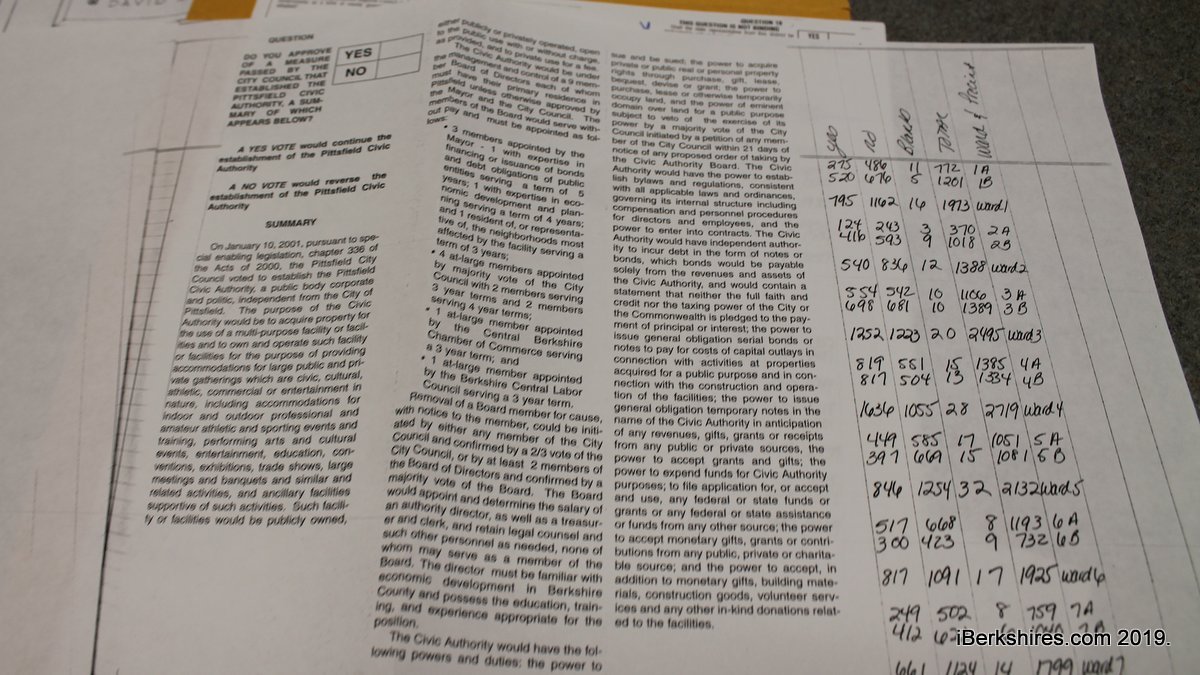 DAVID
QUESTION
DO YOU APPROVE
OF A MEASURE
PASSED BY THE
CITY COUNCIL THAT
ESTABLISHED THE
PITTSFIELD CIVIC
AUTHORITY, A SUM-
MARY OF WHICH
APPEARS BELOW?
YES
NO
A YES VOTE would continue the
establishment of the Pittsfield Civic
Authority
A NO VOTE would reverse the
establishment of the Pittsfield Civic
Authority
SUMMARY
On January 10, 2001, pursuant to spe-
cial enabling legislation, chapter 336 of
the Acts of 2000, the Pittsfield City
Council voted to establish the Pittsfield
Civic Authority, a public body corporate
and politic, independent from the City of
Pittsfield. The purpose of the Civic
Authority would be to acquire property for
the use of a multi-purpose facility or facil-
ities and to own and operate such facility
or facilities for the purpose of providing
accommodations for large public and pri-
vate gatherings which are civic, cultural,
athletic, commercial or entertainment in
nature, including accommodations for
indoor and outdoor professional and
amateur athletic and sporting events and
training, performing arts and cultural
events, entertainment, education, con-
ventions, exhibitions, trade shows, large
meetings and banquets and similar and
related activities, and ancillary facilities
supportive of such activities. Such facili-
ty or facilities would be publicly owned,
either publicly or privately operated, open
to the public use with or without charge,
as provided, and to private use for a fee.
The Civic Authority would be under
the management and control of a 9 mem-
ber Board of Directors each of whom
must have their primary residence in
Pittsfield unless otherwise approved by
the Mayor and the City Council. The
members of the Board would serve with-
out pay and must be appointed as fol-
lows:
• 3 members appointed by the
Mayor - 1 with expertise in
financing or issuance of bonds
and debt obligations of public
entities serving a term of 5
years; 1 with expertise in eco-
nomic development and plan-
ning serving a term of 4 years;
and 1 resident of, or representa-
tive of, the neighborhoods most
affected by the facility serving a
term of 3 years;
• 4 at-large members appointed
by majority vote of the City
Council with 2 members serving
3 year terms and 2 members
serving 4 year terms;
• 1 at-large member appointed
by the Central Berkshire
Chamber of Commerce serving
a 3 year term; and
• 1 at-large member appointed
by the Berkshire Central Labor
Council serving a 3 year term.
Removal of a Board member for cause,
with notice to the member, could be initi-
ated by either any member of the City
Council and confirmed by a 2/3 vote of the
City Council, or by at least 2 members of
the Board of Directors and confirmed by a
majority vote of the Board. The Board
would appoint and determine the salary of
an authority director, as well as a treasur-
er and clerk, and retain legal counsel and
such other personnel as needed, none of
whom may serve as a member of the
Board. The director must be familiar with
economic development in Berkshire
County and possess the education, train-
ing, and experience appropriate for the
position.
The Civic Authority would have the fol-
lowing powers and duties: the power to
QUESTION 18
THIS QUESTION IS NOT BINDING
YES
sue and be sued; the power to acquire
private or public real or personal property
rights through purchase, gift, lease,
bequest, devise or grant; the power to
purchase, lease or otherwise temporarily
occupy land, and the power of eminent
domain over land for a public purpose
subject to veto of the exercise of its
power by a majority vote of the City
Council initiated by a petition of any mem-
ber of the City Council within 21 days of
notice of any proposed order of taking by
the Civic Authority Board. The Civic
Authority would have the power to estab-
lish bylaws and regulations, consistent
with all applicable laws and ordinances,
governing its internal structure including
compensation and personnel procedures
for directors and employees, and the
power to enter into contracts. The Civic
Authority would have independent author-
ity to incur debt in the form of notes or
bonds, which bonds would be payable
solely from the revenues and assets of
the Civic Authority, and would contain a
statement that neither the full faith and
credit nor the taxing power of the City or
the Commonwealth is pledged to the pay-
ment of principal or interest; the power to
issue general obligation serial bonds or
notes to pay for costs of capital outlays in
connection with activities at properties
acquired for a public purpose and in con-
nection with the construction and opera-
tion of the facilities; the power to issue
general obligation temporary notes in the
name of the Civic Authority in anticipation
of any revenues, gifts, grants or receipts
from any public or private sources, the
power to accept grants and gifts; the
power to expend funds for Civic Authority
purposes; to file application for, or accept
and use, any federal or state funds or
grants or any federal or state assistance
or funds from any other source; the power
to accept monetary gifts, grants or contri-
butions from any public, private or charita-
ble source; and the power to accept, in
addition to monetary gifts, building mate-
rials, construction goods, volunteer serv-
ices and any other in-kind donations relat-
ed to the facilities.
yes no Blanks TOTAL Ward & Precinct
275 486 11 772 1A
520 676 5 1201 1B
795 1162 16 1973 ward 1
124 243 3 370 2A
416 593 9 1018 2B
540 836 12 1388 ward 2
554 542 10 1106 3A
698 681 10 1389 3B
1252 1223 20 2495 ward 3
819 551 15 1385 4A
817 504 13 1334 4B
1636 1055 28 2719 ward 4
449 585 17 1051 5A
397 669 15 1081 5B
846 1254 32 2132 ward 5
517 668 8 1193 6A
300 423 9 732 6B
817 1091 17 1925 ward 6
249 502 8 759 7A
412
661 1124 14 1799 ward 7
iBerkshires.com 2019.